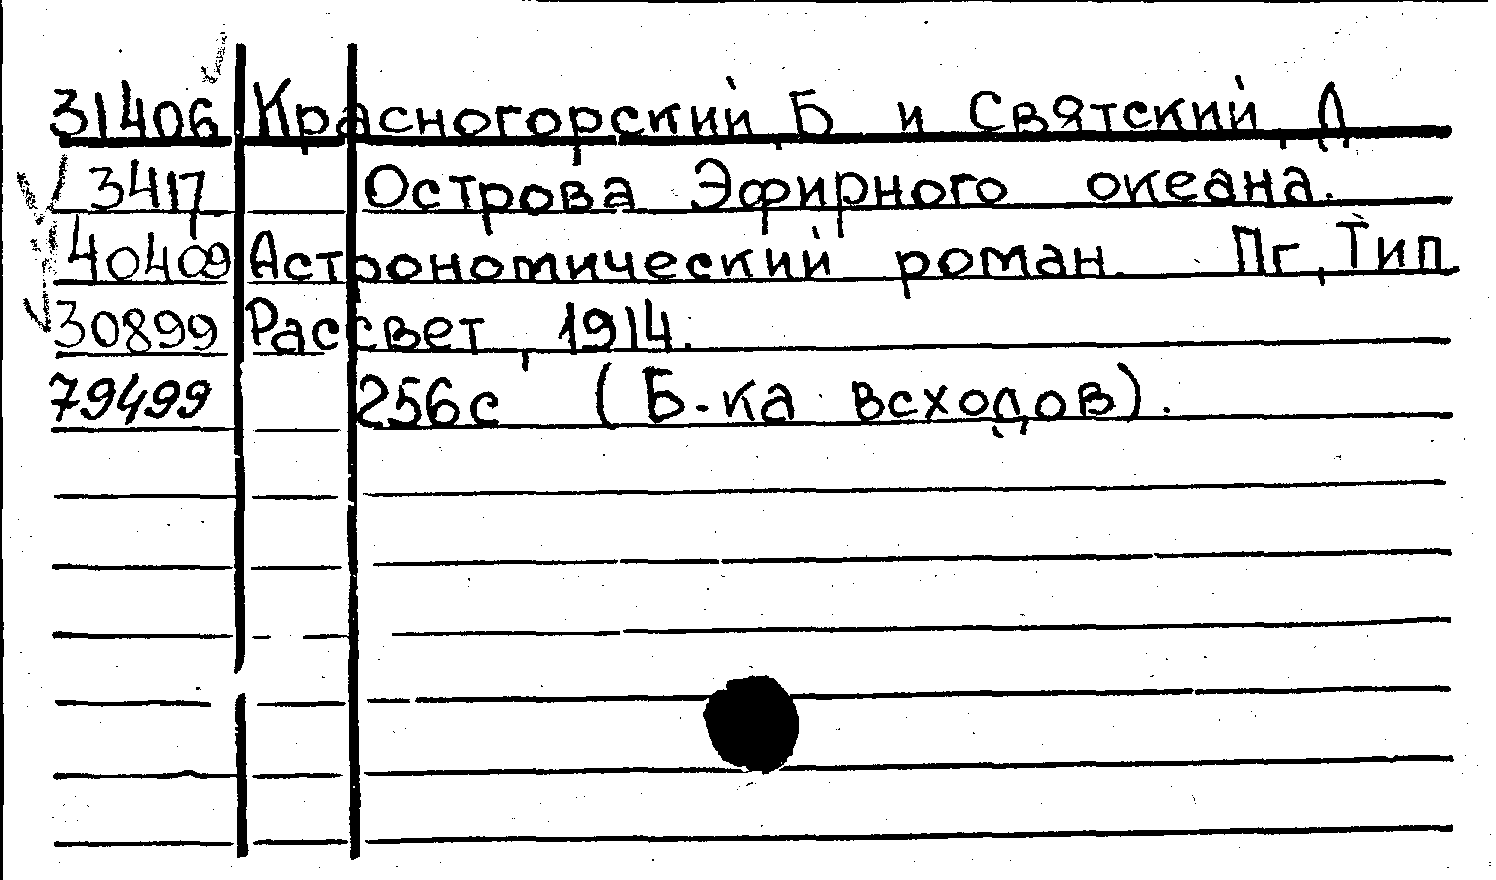 31406 Красногорский, Б и Святский, Д
3417 Острова Эфирного океана.
40409 Астрономический роман. Пг, Тип
30899 Рассвет, 1914.
79499 256с (Б-ка всходов).